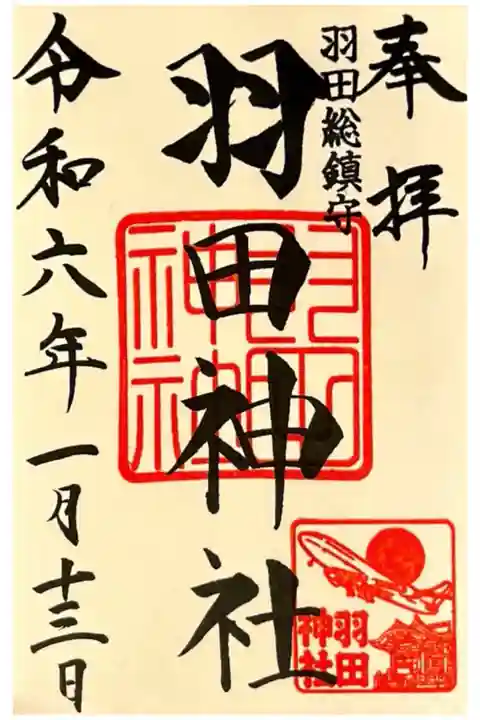 奉拝
羽田総鎮守
羽田神社
令和六年一月十三日
羽田
神社
羽田
神社